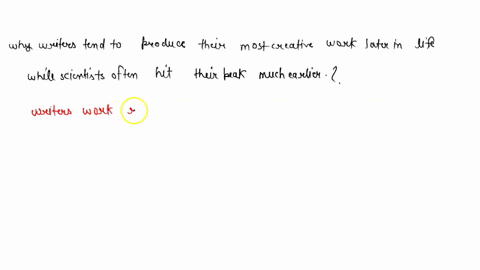 why writers tend to produce their most creative work later in life
while scientists often hit their peak much earlier.?
writers work